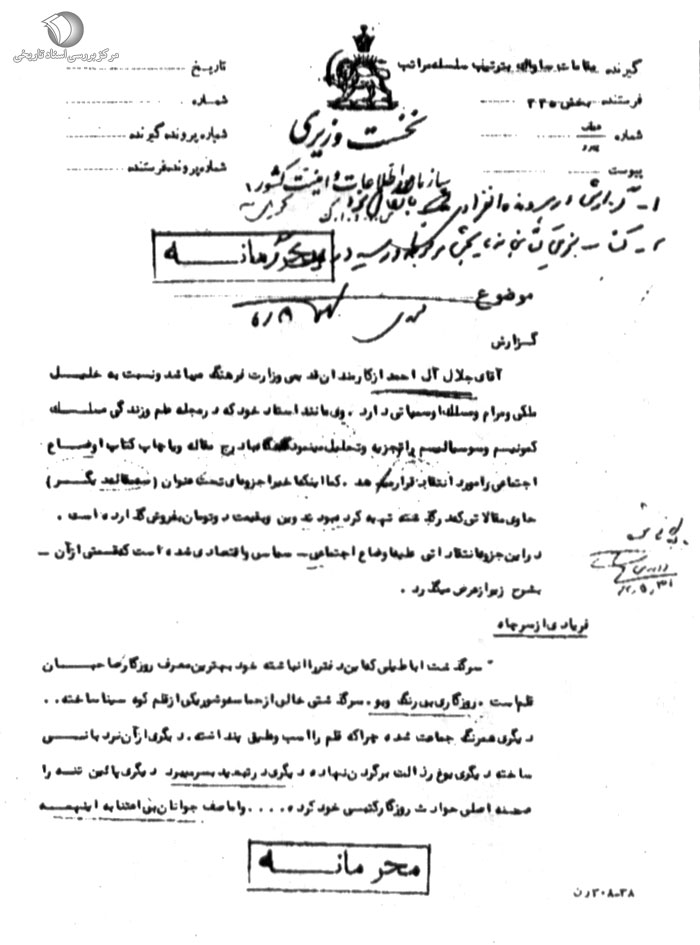 مرکز بررسی اسناد تاریخی
گیرنده مقامات ساواک بترتیب سلسله مراتب
فرستنده بخش ۳۳۵
شماره
پیوست
تاریخ
شماره
شماره پرونده گیرنده
شماره پرونده فرستنده
نخست وزیری
سازمان اطلاعات و امنیت کشور
۱ـ گزارش در پرونده انفرادی
محرمانه
موضوع
گزارش
آقای جلال آل احمد از کارمندان قدیمی وزارت فرهنگ میباشد ونسبت به خلیل
ملکی ومرام ومسلک او سمپاتی دارد . وی مانند استاد خود که در مجله علم وزندگی مسلک
کمونیسم وسوسیالیسم را تجزیه وتحلیل مینمود گاهگاه با درج مقاله ویا چاپ کتاب اوضاع
اجتماعی را مورد انتقاد قرار میدهد . کما اینکه اخیرا جزوه‌ای تحت عنوان (سه مقاله دیگر)
حاوی مقالاتی که در گذشته تهیه کرده بود تدوین وبقیمت دوتومان بفروش گذارده است .
در این جزوه انتقاداتی علیه اوضاع اجتماعی ـ سیاسی واقتصادی شده است که قسمتی از آن ـ
بشرح زیر از عرض میگذرد .
فریادی از سر چاه
" سرگذشت اباطیلی که این دفتر را انباشته خود بهترین معرف روزگار صاحبان
قلم است . روزگاری بی رنگ وبو . سرگذشتی خالی از حماسه وشور یکی از قلم کوه سینا ساخته . .
دیگری همرنگ جماعت شده چرا که قلم را اسب وطبق پنداشته . دیگری از آن نردبانی
ساخته دیگری یوغ رذالت برگردن نهاده دیگری در تبعید بسر میبرد دیگری پائین تنه را
صحنه اصلی حوادث روزگار کتبی خود کرده . . . . واما صف جوانان بی اعتنا به اینهمه
محرمانه
۳۸ـ۳۰۸ ن